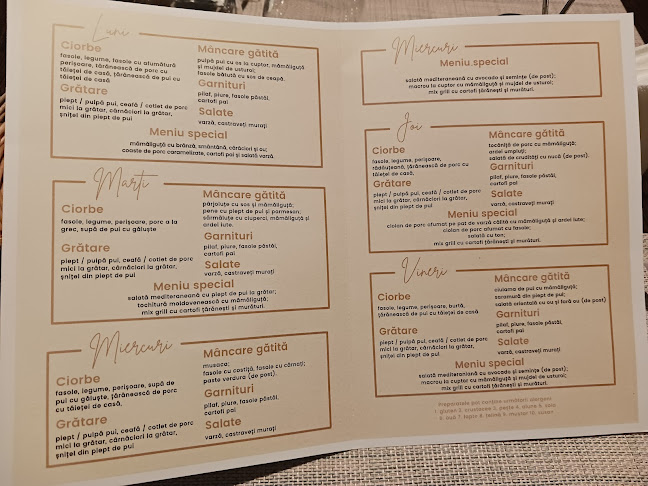 Luni
Ciorbe
fasole, legume, fasole cu afumătură
perișoare, țărănească de porc cu
tăieței de casă, țărănească de pui cu
tăieței de casă
Grătare
piept / pulpă pui, ceafă / cotlet de porc
mici la grătar, cârnăciori la grătar,
șnițel din piept de pui
Mâncare gătită
pulpă pui cu os la cuptor, mămăliguță
și mujdei de usturoi;
fasole bătută cu sos de ceapă.
Garnituri
pilaf, piure, fasole păstăi,
cartofi pai
Salate
varză, castraveți murați
Meniu special
mămăliguță cu brânză, smântână, cârăciori și ou;
coaste de porc caramelizate, cartofi pai și salată varză.
Marți
Ciorbe
fasole, legume, perișoare, porc a la
grec, supă de pui cu găluște
Grătare
piept / pulpă pui, ceafă / cotlet de porc
mici la grătar, cârnăciori la grătar,
șnițel din piept de pui
Mâncare gătită
pârjoluțe cu sos și mămăliguță;
pene cu piept de pui și parmesan;
sărmăluțe cu ciuperci, mămăliguță și
ardei iute.
Garnituri
pilaf, piure, fasole păstăi,
cartofi pai
Salate
varză, castraveți murați
Meniu special
salată mediteraneană cu piept de pui la grătar;
tochitură moldovenească cu mămăliguță;
mix grill cu cartofi țărănești și murături.
Miercuri
Ciorbe
fasole, legume, perișoare, supă de
pui cu găluște, țărănească de porc
cu tăieței de casă,
Grătare
piept / pulpă pui, ceafă / cotlet de porc
mici la grătar, cârnăciori la grătar,
șnițel din piept de pui
Mâncare gătită
musaca;
fasole cu costiță, fasole cu cârnați;
paste verdura (de post).
Garnituri
pilaf, piure, fasole păstăi,
cartofi pai
Salate
varză, castraveți murați
Miercuri
Meniu special
salată mediteraneană cu avocado și semințe (de post);
macrou la cuptor cu mămăliguță și mujdei de usturoi;
mix grill cu cartofi țărănești și murături.
Joi
Ciorbe
fasole, legume, perișoare,
rădăuțeană, țărănească de porc cu
tăieței de casă
Grătare
piept / pulpă pui, ceafă / cotlet de porc
mici la grătar, cârnăciori la grătar,
șnițel din piept de pui
Mâncare gătită
tocăniță de porc cu mămăliguță;
ardei umpluți;
salată de crudități cu nucă (de post).
Garnituri
pilaf, piure, fasole păstăi,
cartofi pai
Salate
varză, castraveți murați
Meniu special
ciolan de porc afumat pe pat de varză călită cu mămăliguță și ardei iute;
ciolan de porc afumat cu fasole;
salată cu ton;
mix grill cu cartofi țărănești și murături.
Vineri
Ciorbe
fasole, legume, perișoare, burtă,
țărănească de pui cu tăieței de casă
Grătare
piept / pulpă pui, ceafă / cotlet de porc
mici la grătar, cârnăciori la grătar,
șnițel din piept de pui
Mâncare gătită
ciulama de pui cu mămăliguță;
saramură din piept de pui;
salată orientală cu ou și fără ou (de post)
Garnituri
pilaf, piure, fasole păstăi,
cartofi pai
Salate
varză, castraveți murați
Meniu special
salată mediteraneană cu avocado și semințe (de post);
macrou la cuptor cu mămăliguță și mujdei de usturoi;
mix grill cu cartofi țărănești și murături.
Preparatele pot conține următorii alergeni:
1. gluten 2. crustacee 3. pește 4. alune 5. soia
6. ouă 7. lapte 8. țelină 9. muștar 10. susan